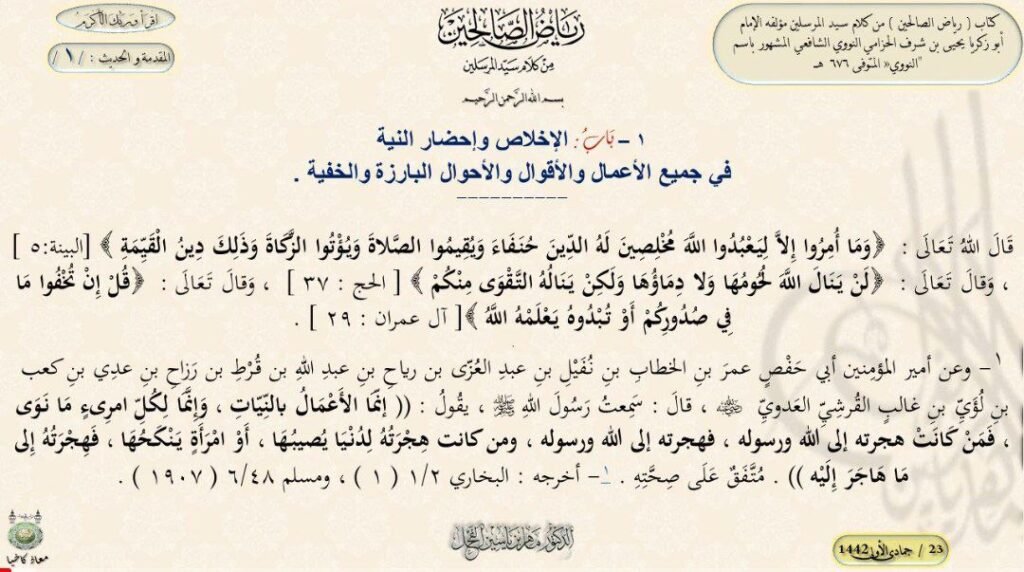 كتاب ( رياض الصالحين ) من كلام سيد المرسلين مؤلفه الإمام
أبو زكريا يحيى بن شرف الحزامي النووي الشافعي المشهور باسم
"النووي« المتوفى ٦٧٦ هـ
رياض الصالحين
من كلام سيد المرسلين
بسم الله الرحمن الرحيم
اقرأ وربك الأكرم
المقدمة والحديث : / ١ /
١ – بَابُ : الإخلاص وإحضار النية
في جميع الأعمال والأقوال والأحوال البارزة والخفية .
قَالَ اللهُ تَعَالَى : ﴿وَمَا أُمِرُوا إِلاَّ لِيَعْبُدُوا اللَّهَ مُخْلِصِينَ لَهُ الدِّينَ حُنَفَاءَ وَيُقِيمُوا الصَّلاةَ وَيُؤْتُوا الزَّكَاةَ وَذَلِكَ دِينُ الْقَيِّمَةِ ﴾ [البينة:٥ ]
، وَقَالَ تَعَالَى : ﴿لَنْ يَنَالَ اللَّهَ لُحُومُهَا وَلا دِمَاؤُهَا وَلَكِنْ يَنَالُهُ التَّقْوَى مِنْكُمْ ﴾ [ الحج : ٣٧ ] ، وَقَالَ تَعَالَى : ﴿قُلْ إِنْ تُخْفُوا مَا
فِي صُدُورِكُمْ أَوْ تُبْدُوهُ يَعْلَمْهُ اللَّهُ ﴾[ آل عمران : ٢٩ ] .
١ – وعن أمير المؤمِنين أبي حَفْصٍ عمرَ بنِ الخطابِ بنِ نُفَيْلِ بنِ عبدِ العُزّى بن رياحِ بنِ عبدِ اللهِ بن قُرْطِ بن رَزاحِ بنِ عدِي بنِ كعب
بنِ لُؤَيِّ بنِ غالبٍ القُرشِيِّ العَدويِّ ﵁ ، قالَ : سَمِعتُ رَسُولَ اللهِ ﷺ ، يقُولُ : (( إنّمَا الأَعْمَالُ بالنِّيّاتِ ، وَإِنَّمَا لِكُلِّ امرِىءٍ مَا نَوَى
، فَمَنْ كَانَتْ هجرته إلى الله ورسوله ، فهجرته إلى الله ورسوله ، ومن كانت هِجْرَتُهُ لِدُنْيَا يُصيبُهَا ، أَوْ امْرَأَةٍ يَنْكَحُهَا ، فَهِجْرَتُهُ إِلى
مَا هَاجَرَ إِلَيْه )) . مُتَّفَقٌ عَلَى صِحَّتِهِ . ١– أخرجه : البخاري ١/٢ ( ١ ) ، ومسلم ٦/٤٨ ( ١٩٠٧ ) .
23 / جمادى الأولى 1442
الدكتور ماهر ياسين الفحل